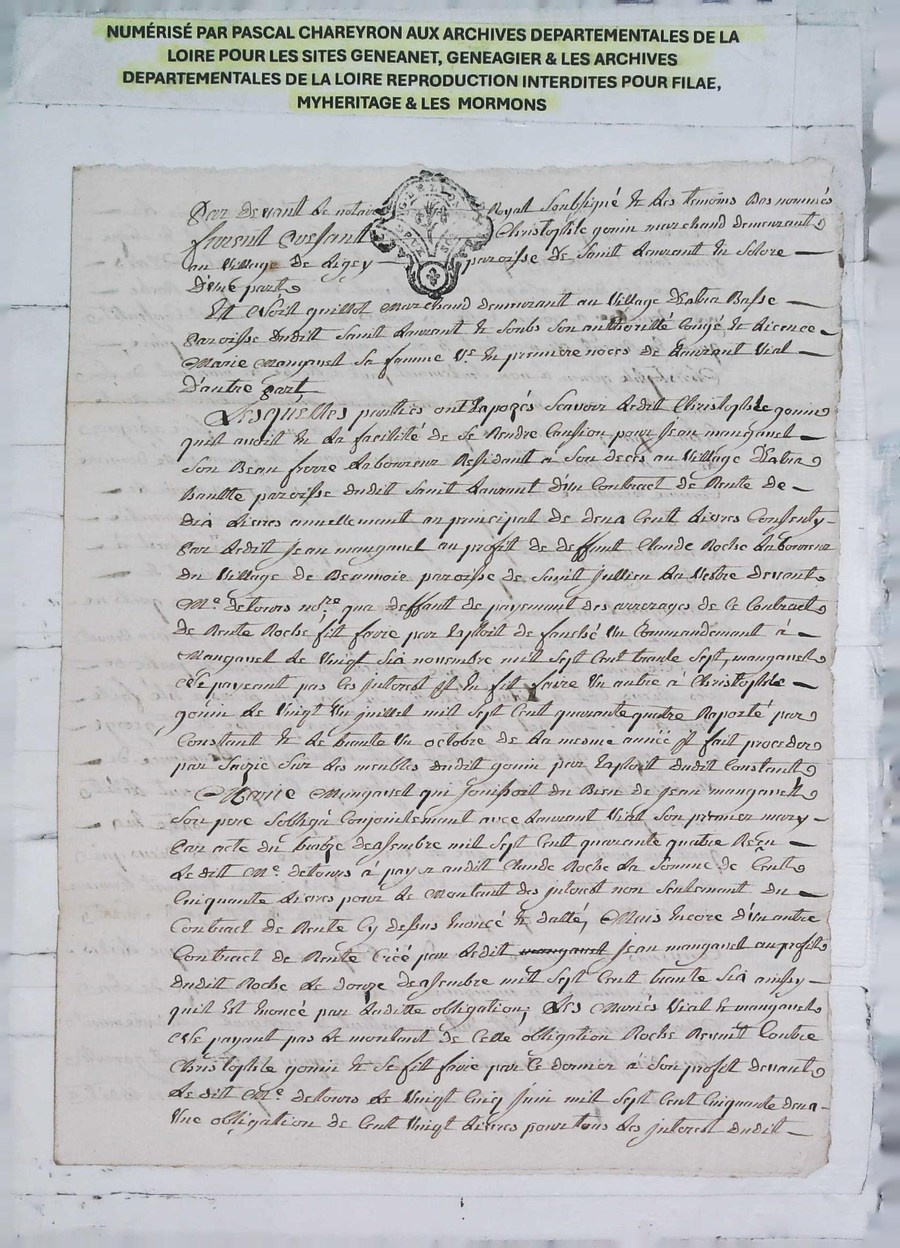 NUMÉRISÉ PAR PASCAL CHAREYRON AUX ARCHIVES DEPARTEMENTALES DE LA
LOIRE POUR LES SITES GENEANET, GENEAGIER & LES ARCHIVES
DEPARTEMENTALES DE LA LOIRE REPRODUCTION INTERDITES POUR FILAE,
MYHERITAGE & LES MORMONS
Par devant Le notaire Royal Soubsigné & Les temoins Bas nommés
furent Christophle gonin marchand demeurant
au Village de paroisse de Saint Laurant en Solore
D'une part
Et Noël guillot Marchand demeurant au Village Basse
paroisse dudit Saint Laurant & Soubs Son authorité Congé & Licence
Marie manganel Sa famme Vᵉ En premiere noces de Laurant Vial
D'autre part
Lesquelles parties ont Exposés Scavoir Ledit Christophle gonin
quil avoit Eu La facilité de Se Rendre Caution pour Jean manganel
Son Beau frere Laboureur Residant à Son deces au Village
haultte paroisse dudit Saint Laurant D'un Contract de Rente de
dix Livres annellement au principal de deux Cent Livres Consenty
par Ledit Jean manganel au profit de deffunt Claude Roche Laboureur
du Village de Beauvoir paroisse de Saint Jullien La Vestre devant
Mᵉ delours noʳᵉ qua deffaut de payement des arrerages de Ce Contract
de Rente Roche fit faire par Exploit de Un Commandement à
Manganel Le Vingt Six novembre mil Sept Cent trante Sept, manganel
Ne payeant pas Ces Interest Il En fit faire Un autre à Christophle
gonin Le Vingt Un juillet mil Sept Cent quarante quatre Raporté par
Constant & Le trante Un octobre de La mesme année Il fait proceder
par Saizie Sur Les meubles dudit gonin par Exploit dudit Constant
Marie Manganel qui Jouissoit du Bien de Jean manganel
Son pere Sobliga Conjointement avec Laurant Vial Son premier mary
par acte du treize dexembre mil Sept Cent quarante quatre Reçu
Ledit Mᵉ delours à payer audit Claude Roche La Somme de Cent
Cinquante Livres pour Le Montant des Interest non Seulement du
Contract de Rente Cy dessus Enoncé & datté, Mais Encore d'un autre
Contract de Rente Créé par Ledit manganel Jean manganel au profit
dudit Roche Le douze dexembre mil Sept Cent trante Six ainsy
quil Est Enoncé par Laditte obligation; Les Mariés Vial & manganel
Ne payant pas Le montant de Cette obligation Roche Revint Contre
Christophle gonin & Se fit faire par Ce dernier à Son profit devant
Ledit Mᵉ delours Le Vingt Cinq Juin mil Sept Cent Cinquante deux
Une obligation de Cent Vingt Livres pour tous Les Interest dudit